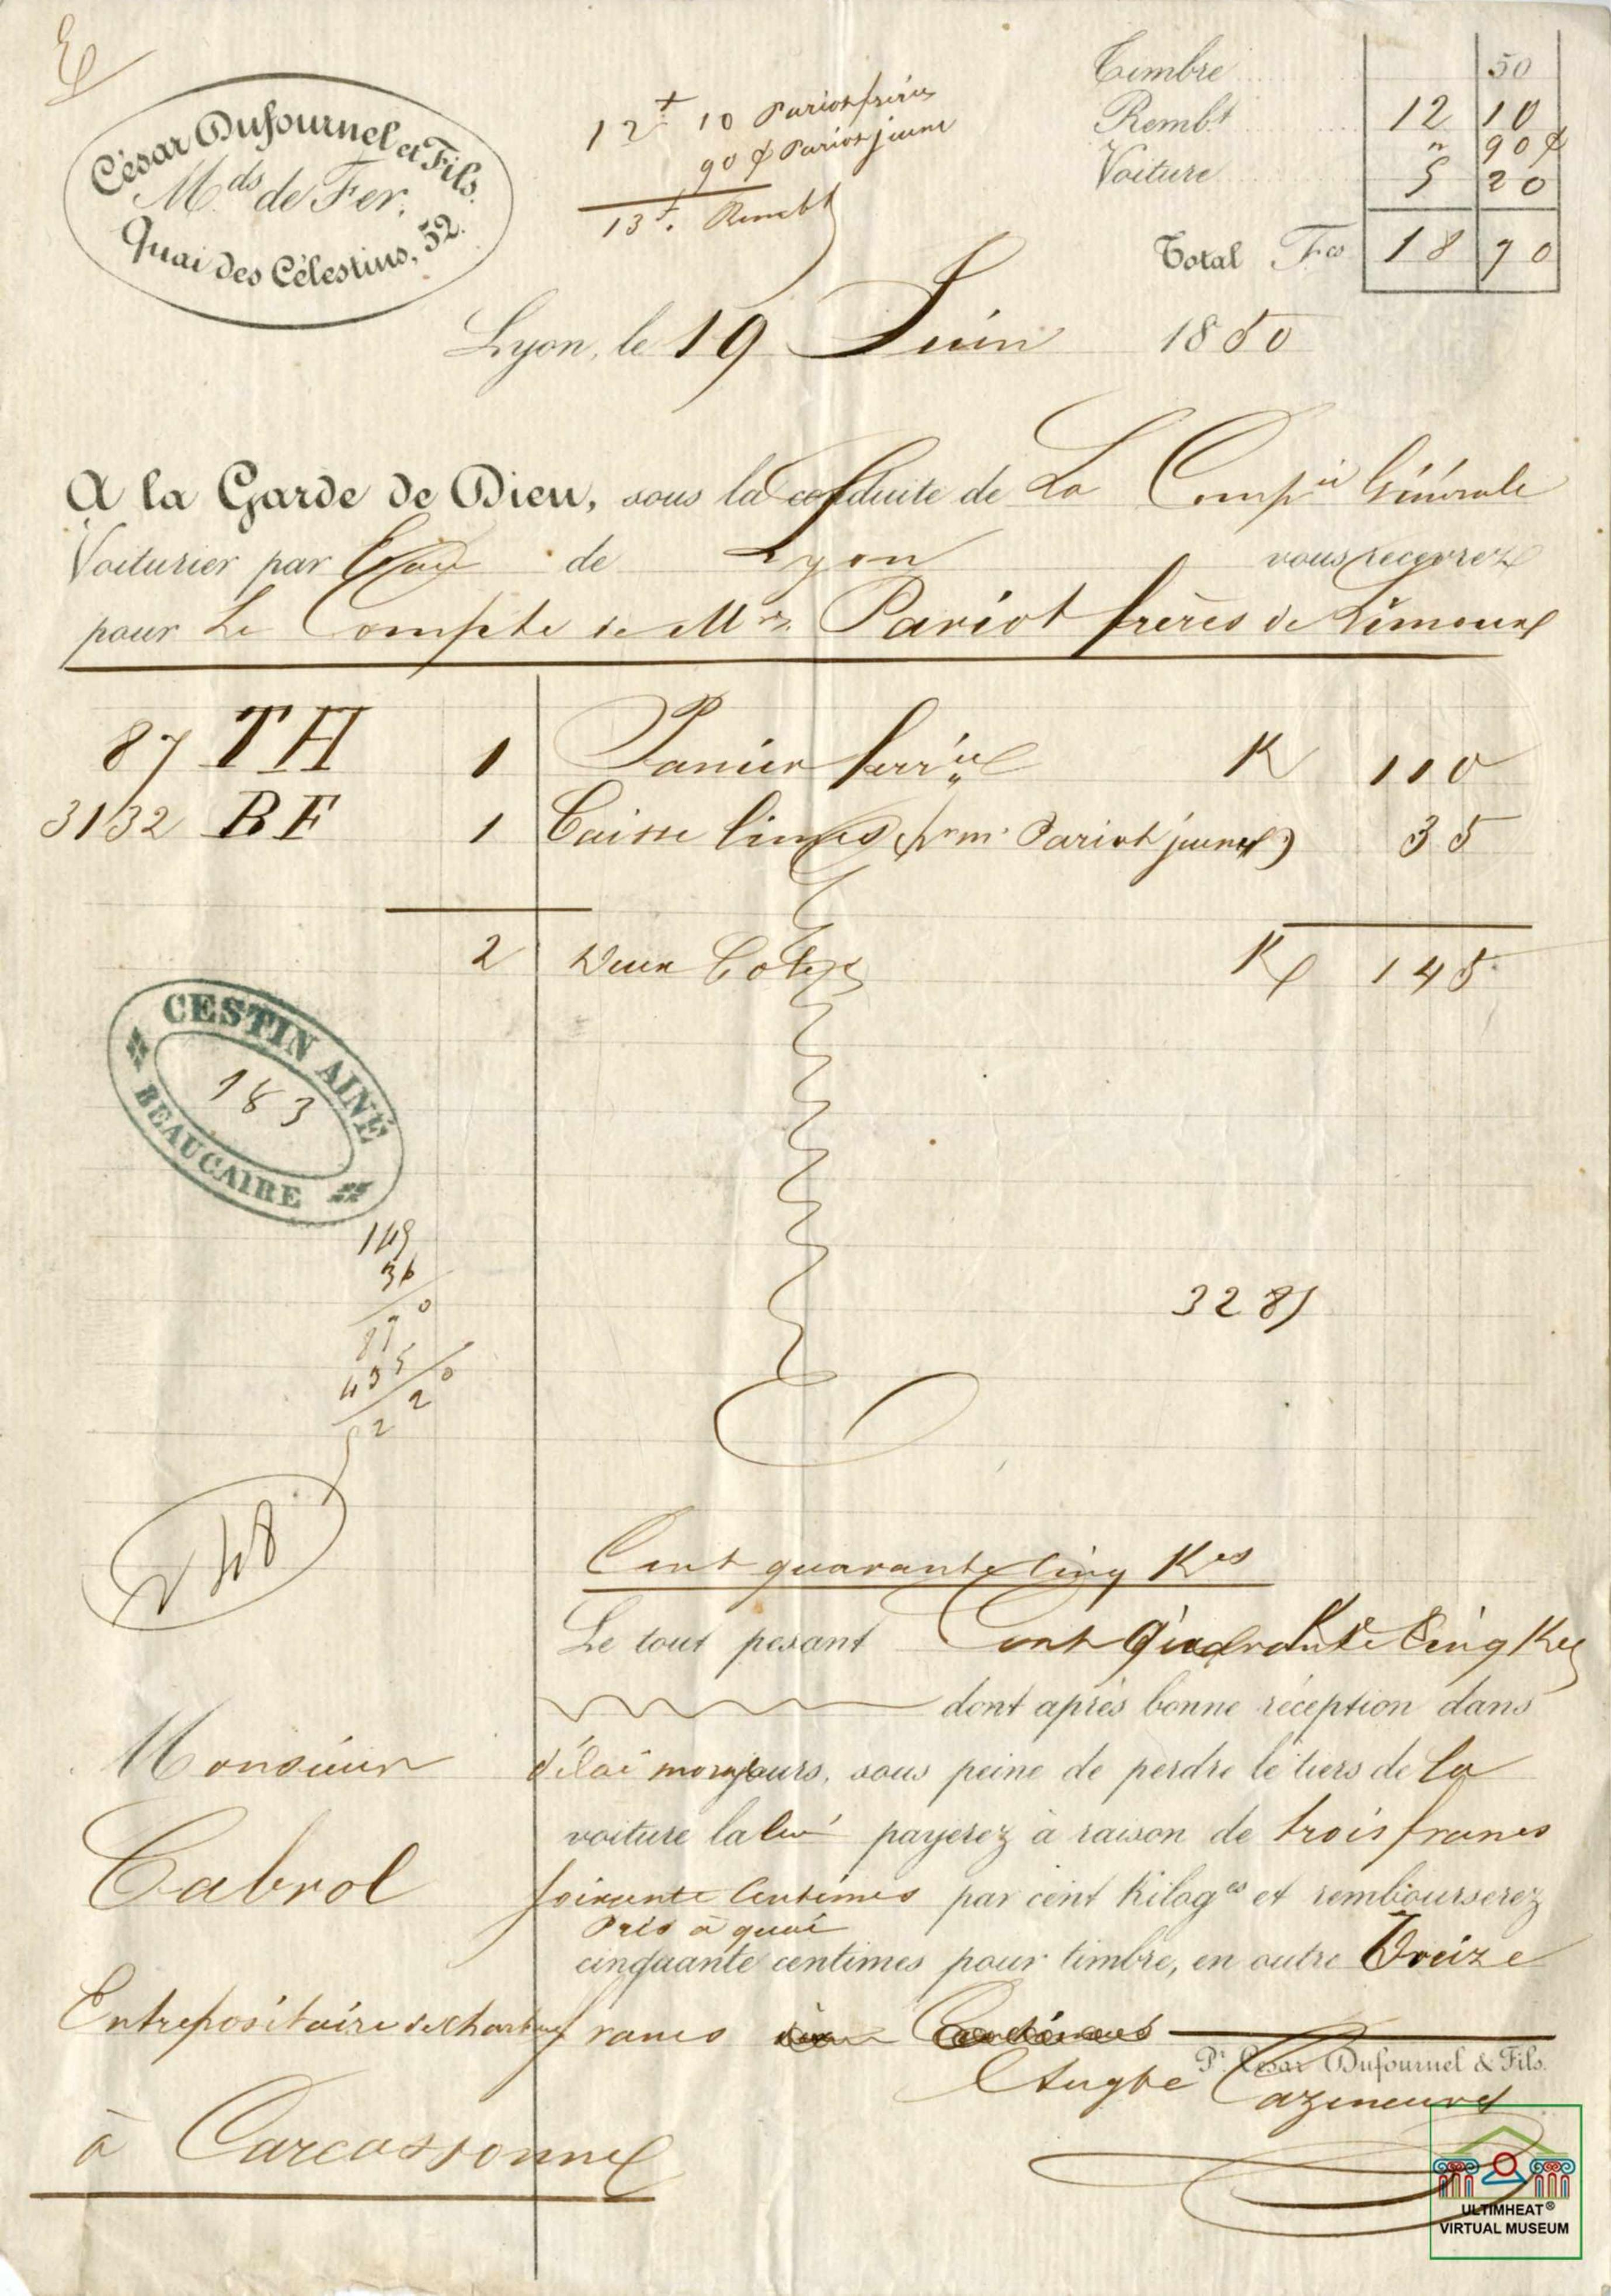 César Dufournel et Fils.
Mds de Fer.
Quai des Célestins, 52.
12f 10 Pariot frères
90 Pariot jeune
13f. Rembt
Timbre 50
Rembt 12 10
" 90
Voiture 5 20
Total Fcs 18 70
Lyon, le 19 Juin 1850
A la Garde de Dieu, sous la conduite de La Compie Générale
Voiturier par Eau de Lyon vous recevrez
pour Le Compte de Mrs Pariot frères de Limoux
87 TH 1 Panier ferrie K 110
3132 BF 1 Caisse limes (pr mr Pariot jeune) 35
2 Deux Colis K 145
CESTIN AINÉ
183
BEAUCAIRE
145
36
870
435
5220
3285
248
Cent quarante cinq Kes
Le tout pesant Cent Quarante Cinq Kes
dont après bonne réception dans
délai moral jours, sous peine de perdre le tiers de la
voiture la lui payerez à raison de trois francs
soixante Centimes par cent Kilogs et rembourserez
Pris à quai
cinquante centimes pour timbre, en outre Treize
francs Centimes
Pr César Dufournel & Fils.
Cazeneuve
Monsieur
Cabrol
Entrepositaire de charbons
à Carcassonne
ULTIMHEAT®
VIRTUAL MUSEUM